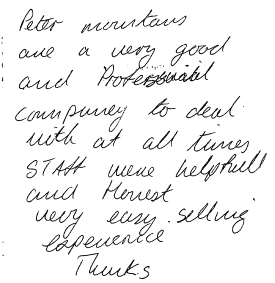 Peter mountans
are a very good
and Professional
compuney to deal
with at all times
STAFF were helpfull
and Honest
very easy selling
experience
Thanks